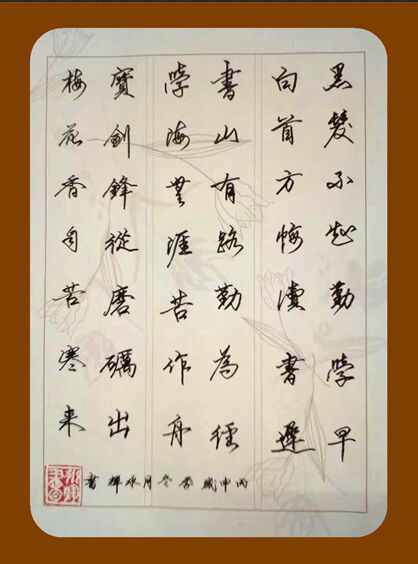 黑髮不知勤學早
白首方悔讀書遲
書山有路勤為徑
學海無涯苦作舟
寶劍鋒從磨礪出
梅花香自苦寒来
丙申歲冬月輝書